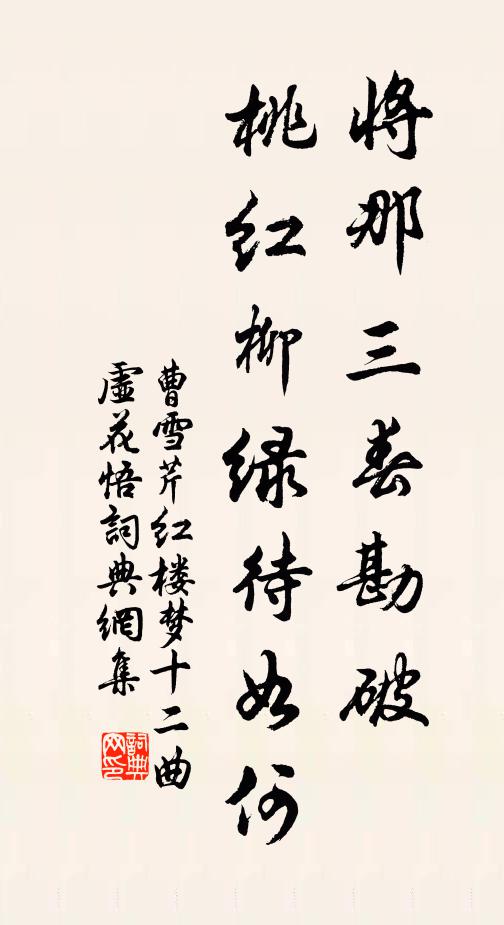 將那三春勘破
桃红柳绿待如何
曹雪芹红楼梦十二曲
虛花悟詞典網集
詞典
网印